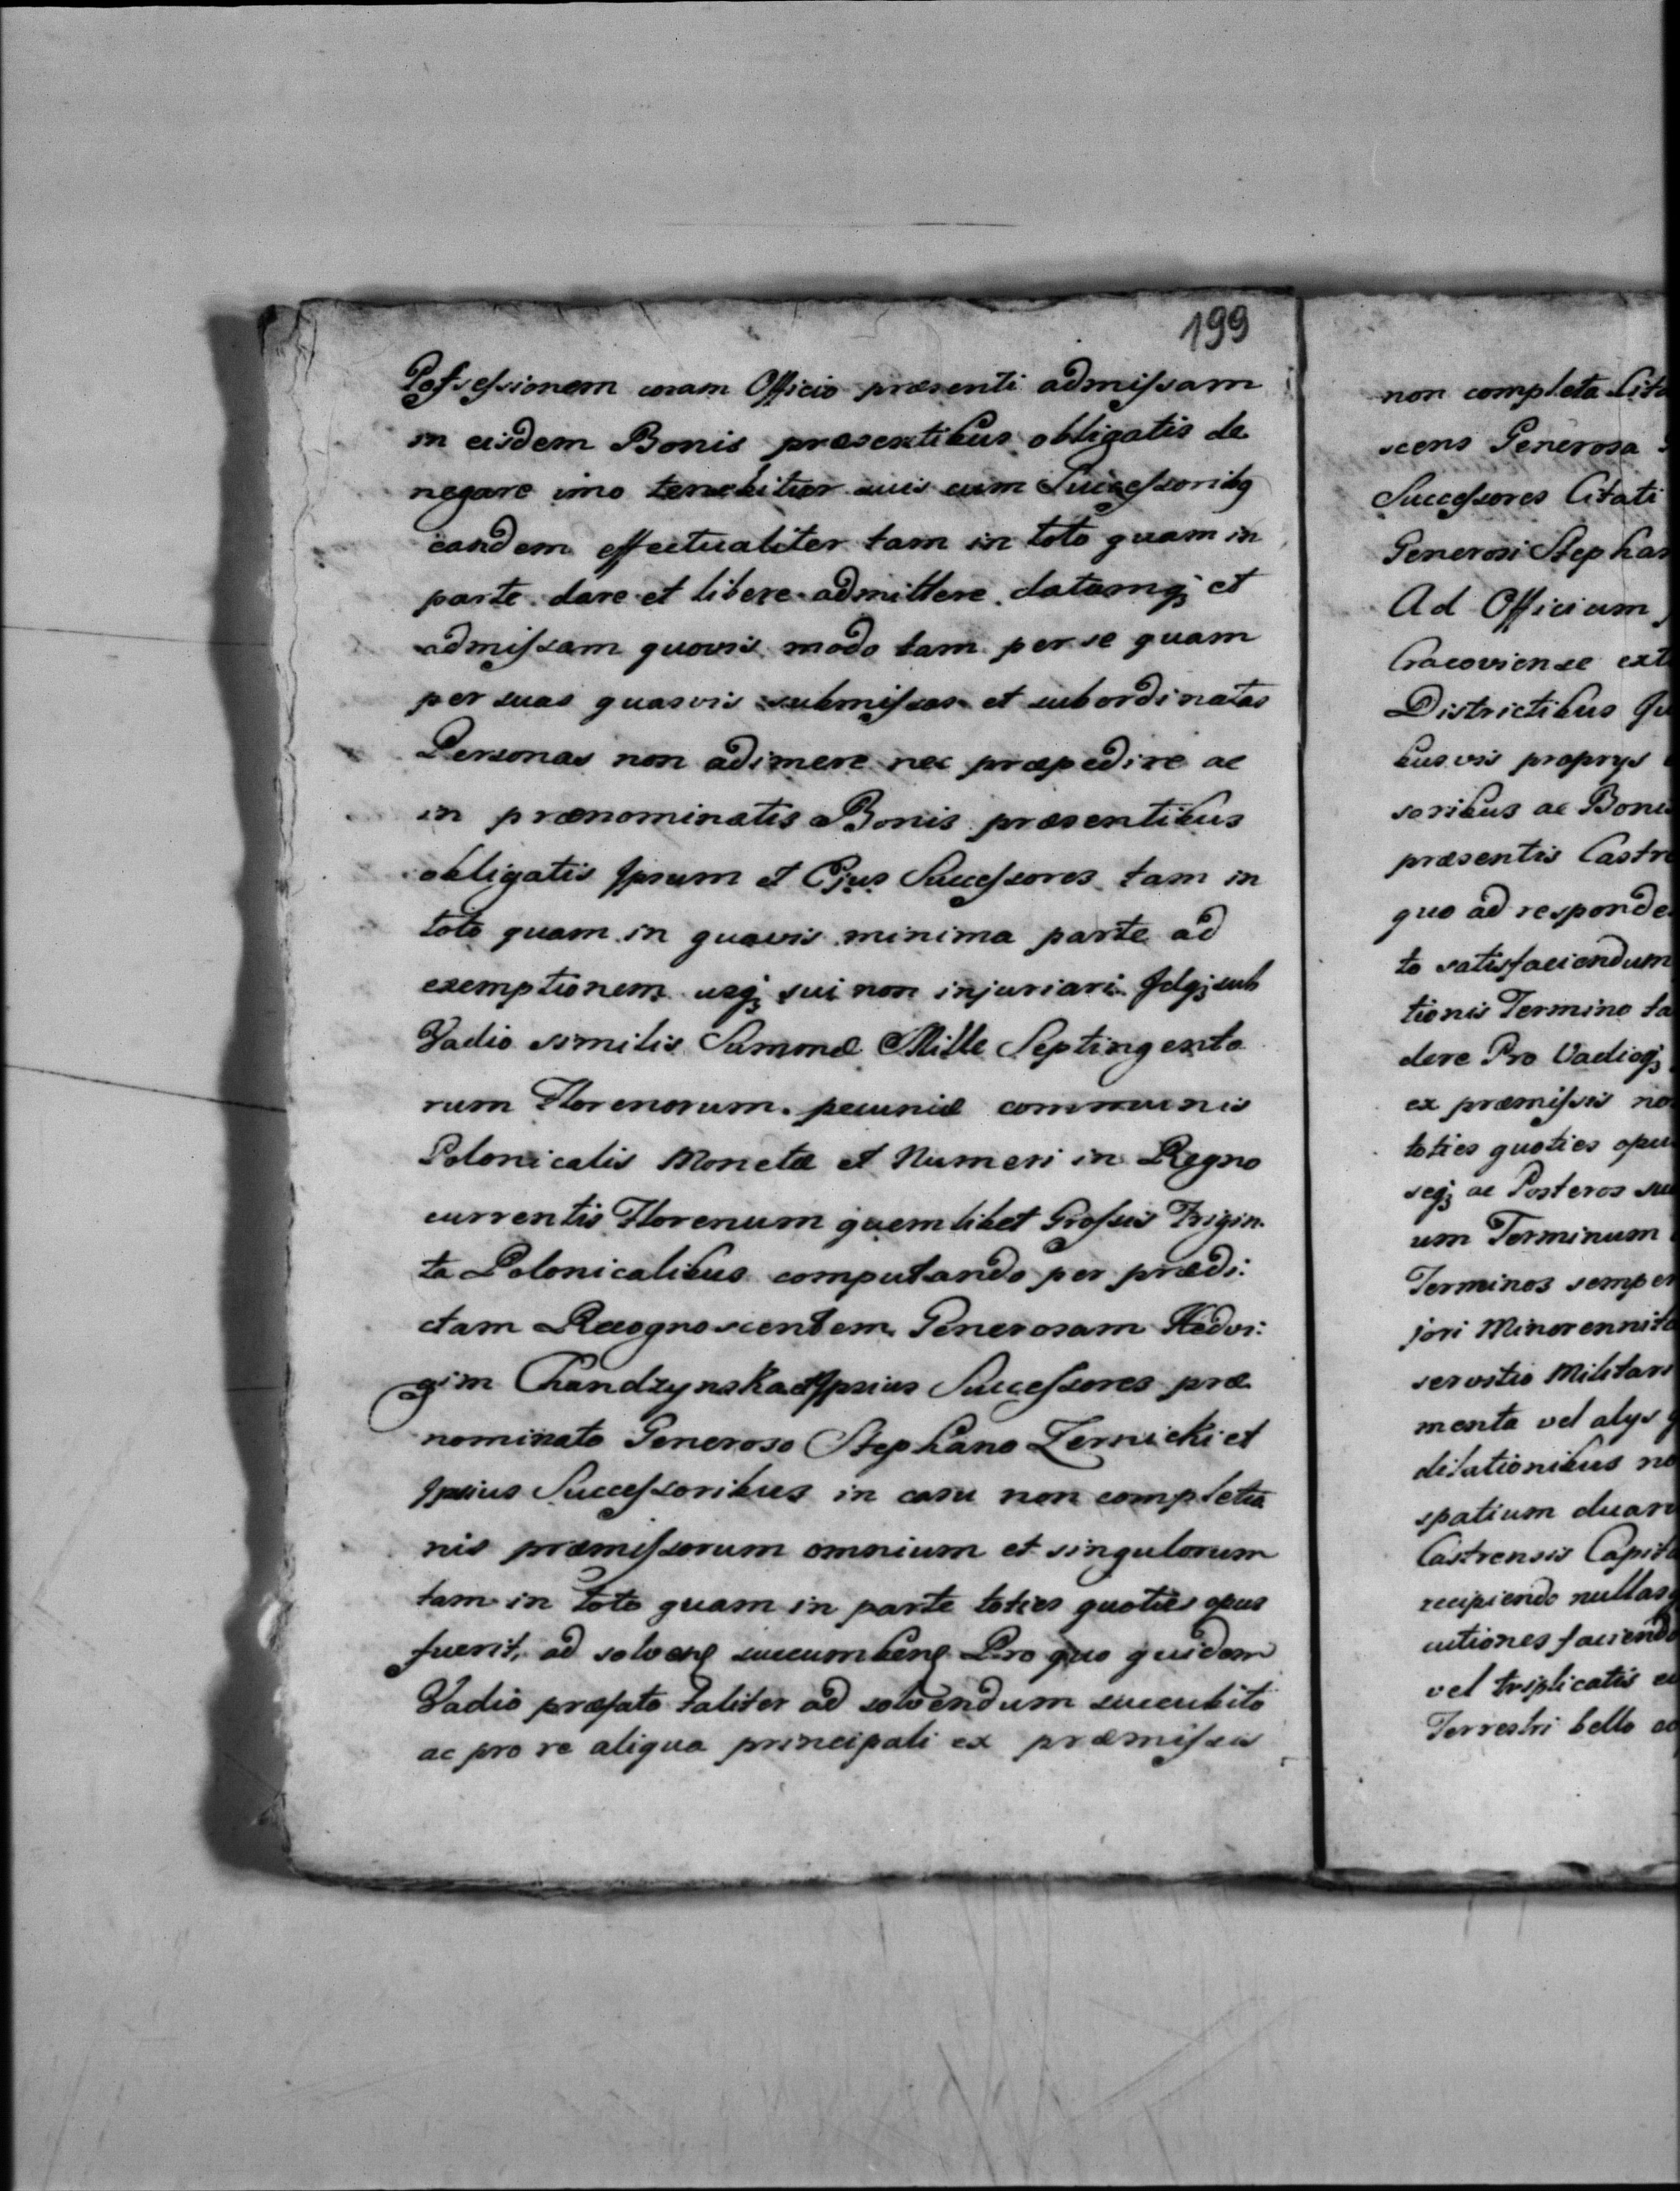 199
Possessionem coram Officio præsenti admissam
in eisdem Bonis præsentibus obligatis de
negare imo tenebitur suis cum Successoribq
eandem effectualiter tam in toto quam in
parte dare et libere admittere datamq; et
admissam quovis modo tam per se quam
per suas quasvis submissas et subordinatas
Personas non adimere nec præpedire ac
in prænominatis Bonis præsentibus
obligatis Ipsum et Ejus Successores tam in
toto quam in quavis minima parte ad
exemptionem usq; sui non injuriari Idq; sub
Vadio similis Summæ Mille Septingento
rum Florenorum pecuniæ communis
Polonicalis Monetæ et Numeri in Regno
currentis Florenum quemlibet Grossis Trigin-
ta Polonicalibus computando per prædi:
ctam Recognoscentem Generosam Hedvi:
gim Chandzynska et Ipsius Successores præ
nominato Generoso Stephano Zernicki et
Ipsius Successoribus in casu non completio
nis præmissorum omnium et singulorum
tam in toto quam in parte toties quoties opus
fuerit, ad solvend succumbend Pro quo quidem
Vadio præfato taliter ad solvendum succubito
ac pro re aliqua principali ex præmissis
non completa
scens Generosa
Successores Citati
Generosi
Ad Officium
Cracoviense
Districtibus
busvis proprys
soribus ac
præsentis
quo ad
to satisfaciendum
tionis Termino
dere Pro Vadioq;
ex præmissis
toties quoties
seq; ac Posteros
um Terminum
Terminos
jori
servitio
menta vel alys
dilationibus
spatium
Castrensis
recipiendo
cutiones
vel triplicatis
Terrestri bello